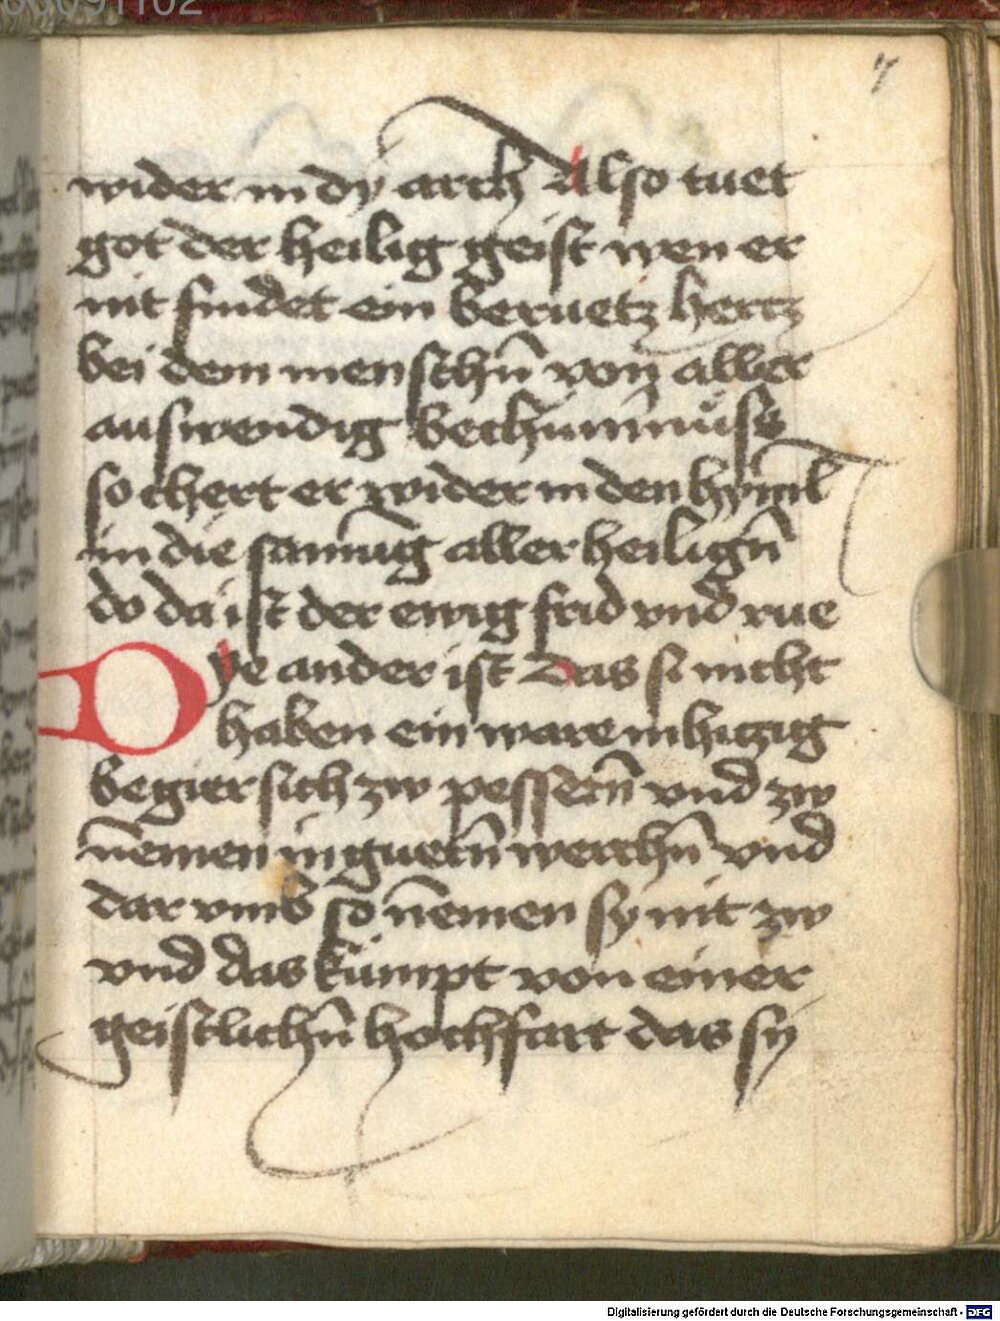 7
wider in dy arch Also tuet
got der heilig geist wen er
nit findet ein beruetz hertz
bei dem menschn̄ von aller
auswendig bechūmmüss
so chert er wider in den hym̄l
in die samūg aller heilign̄
do da ist der ewig frid vnd rue
Dye ander ist das si nicht
haben ein ware inhitzig
begier sich zw pessern̄ vnd zw
nemen in guetn̄ werchn̄ vnd
dar vmb so nemen sy nit zw
vnd das kümpt von einer
geistlichn̄ hochfart das sy
Digitalisierung gefördert durch die Deutsche Forschungsgemeinschaft - DFG